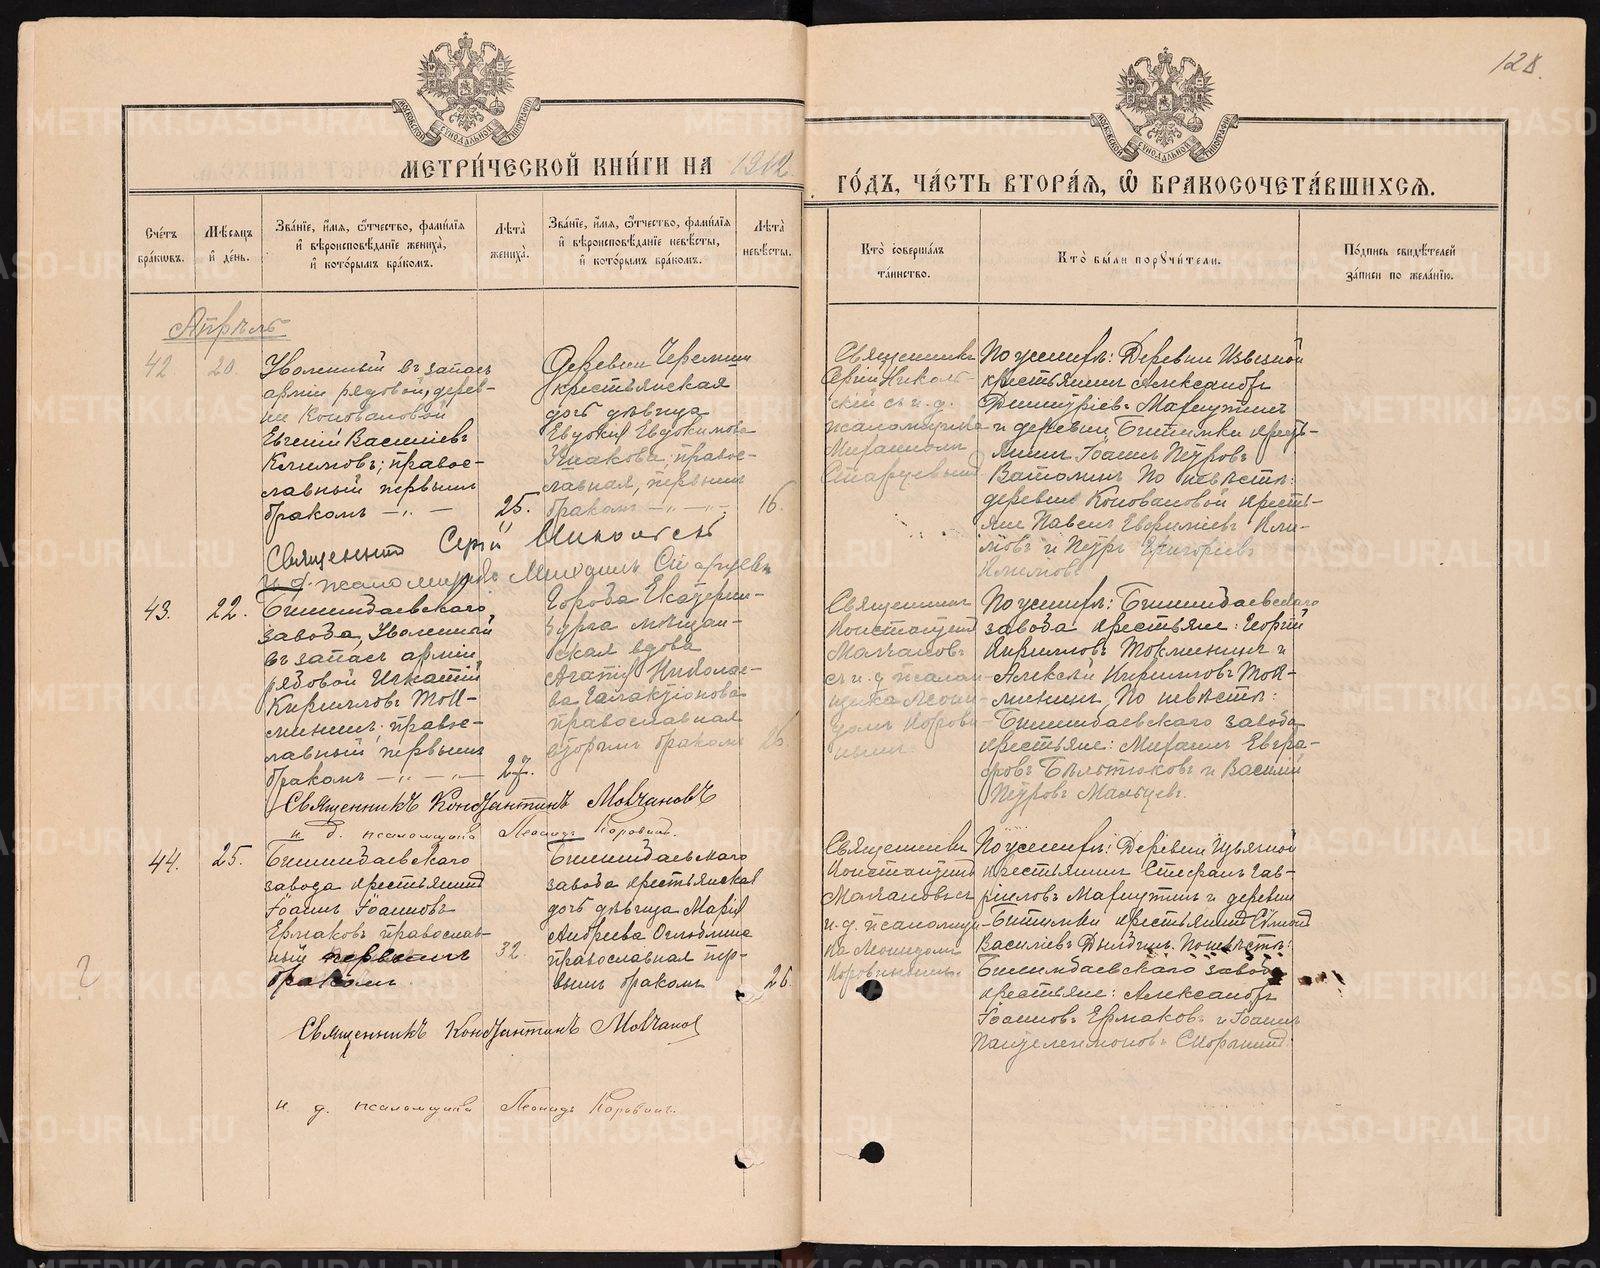 128.
МЕТРИ́ЧЕСКОЙ КНИ́ГИ НА 1912
ГО́ДЪ, ЧА́СТЬ ВТОРА́Я, Ѡ БРАКОСОЧЕТА́ВШИХСЯ.
Сче́тъ бра́ковъ.
Мѣ́сяцъ и́ де́нь.
Зва́нїе, и́мя, ѻ҆́тчество, фами́лїя и́ вѣроисповѣ́данїе жениха̀, и́ кото́рымъ бра́комъ.
Лѣта̀ жениха̀.
Зва́нїе, и́мя, ѻ҆́тчество, фами́лїя и́ вѣроисповѣ́данїе невѣ́сты, и́ кото́рымъ бра́комъ.
Лѣта̀ невѣ́сты.
Кто̀ соверша́лъ та́инство.
Кто̀ бы́ли порꙋчи́тели.
По́дпись свидѣ́телей за́писи по жела́нїю.
Апрѣль
42
20.
Уволенный въ запасъ
арміи рядовой, дерев-
ни Коноваловой
Евгеній Василіевъ
Климовъ; правос-
лавный первымъ
бракомъ — „ —
25.
Деревни Черемши
крестьянская
дочь дѣвица
Евдокія Евдокимова
правос-
лавная, первымъ
бракомъ — „ —
16.
Священникъ
Сергій Николь-
скій съ и. д.
псаломщика
Михаиломъ
Старцевымъ
По женихѣ: Деревни Извезной
крестьянинъ Александръ
Димитріевъ Мархутинъ
и деревни Битимки кресть-
янинъ Іоаннъ Петровъ
Ватолинъ По невѣстѣ:
деревни Коноваловой кресть-
яне Павелъ Евфиміевъ Кли-
мовъ и Петръ Григорьевъ
Климовъ
Священникъ Сергій Никольскій
и. д. псаломщика Михаилъ Старцевъ
43.
22.
Билимбаевскаго
завода, Уволенный
въ запасъ арміи
рядовой Игнатій
Кирилловъ Ток-
мининъ; правос-
лавный первымъ
бракомъ — „ — „ —
27.
Города Екатерин-
бурга мѣщан-
ская вдова
Агапія Никола-
ева Галактіонова
православная
вторымъ бракомъ
26
Священникъ
Константинъ
Молчановъ
съ и. д. псалом-
щика Леони-
домъ Корови-
нымъ.
По женихѣ: Билимбаевскаго
завода крестьяне: Георгій
Кирилловъ Токмининъ и
Алексѣй Кирилловъ Ток-
мининъ, По невѣстѣ:
Билимбаевскаго завода
крестьяне: Михаилъ Евгра-
фовъ Бѣлотюковъ и Василій
Петровъ Мальцевъ.
Священникъ Константинъ Молчановъ
и д. псаломщика Леонидъ Коровинъ.
44.
25.
Билимбаевскаго
завода крестьянинъ
Іоаннъ Іоанновъ
Ермаковъ православ-
ный первымъ
бракомъ
32.
Билимбаевскаго
завода крестьянская
дочь дѣвица Марія
Андреева
православная пер-
вымъ бракомъ
26.
Священникъ
Константинъ
Молчановъ съ
и. д. псаломщи-
ка Леонидомъ
Коровинымъ.
По женихѣ: Деревни Извязной
крестьянинъ Стефанъ Гав-
ріиловъ Мархутинъ и деревни
Битимки крестьянинъ Симеонъ
Василіевъ Дылдинъ. По невѣстѣ:
Билимбаевскаго завода
крестьяне: Александръ
Іоанновъ Ермаковъ и Іоаннъ
Пантелеимоновъ Скорынинъ.
Священникъ Константинъ Молчанов
и д. псаломщика Леонидъ Коровинъ.
METRIKI.GASO-URAL.RU